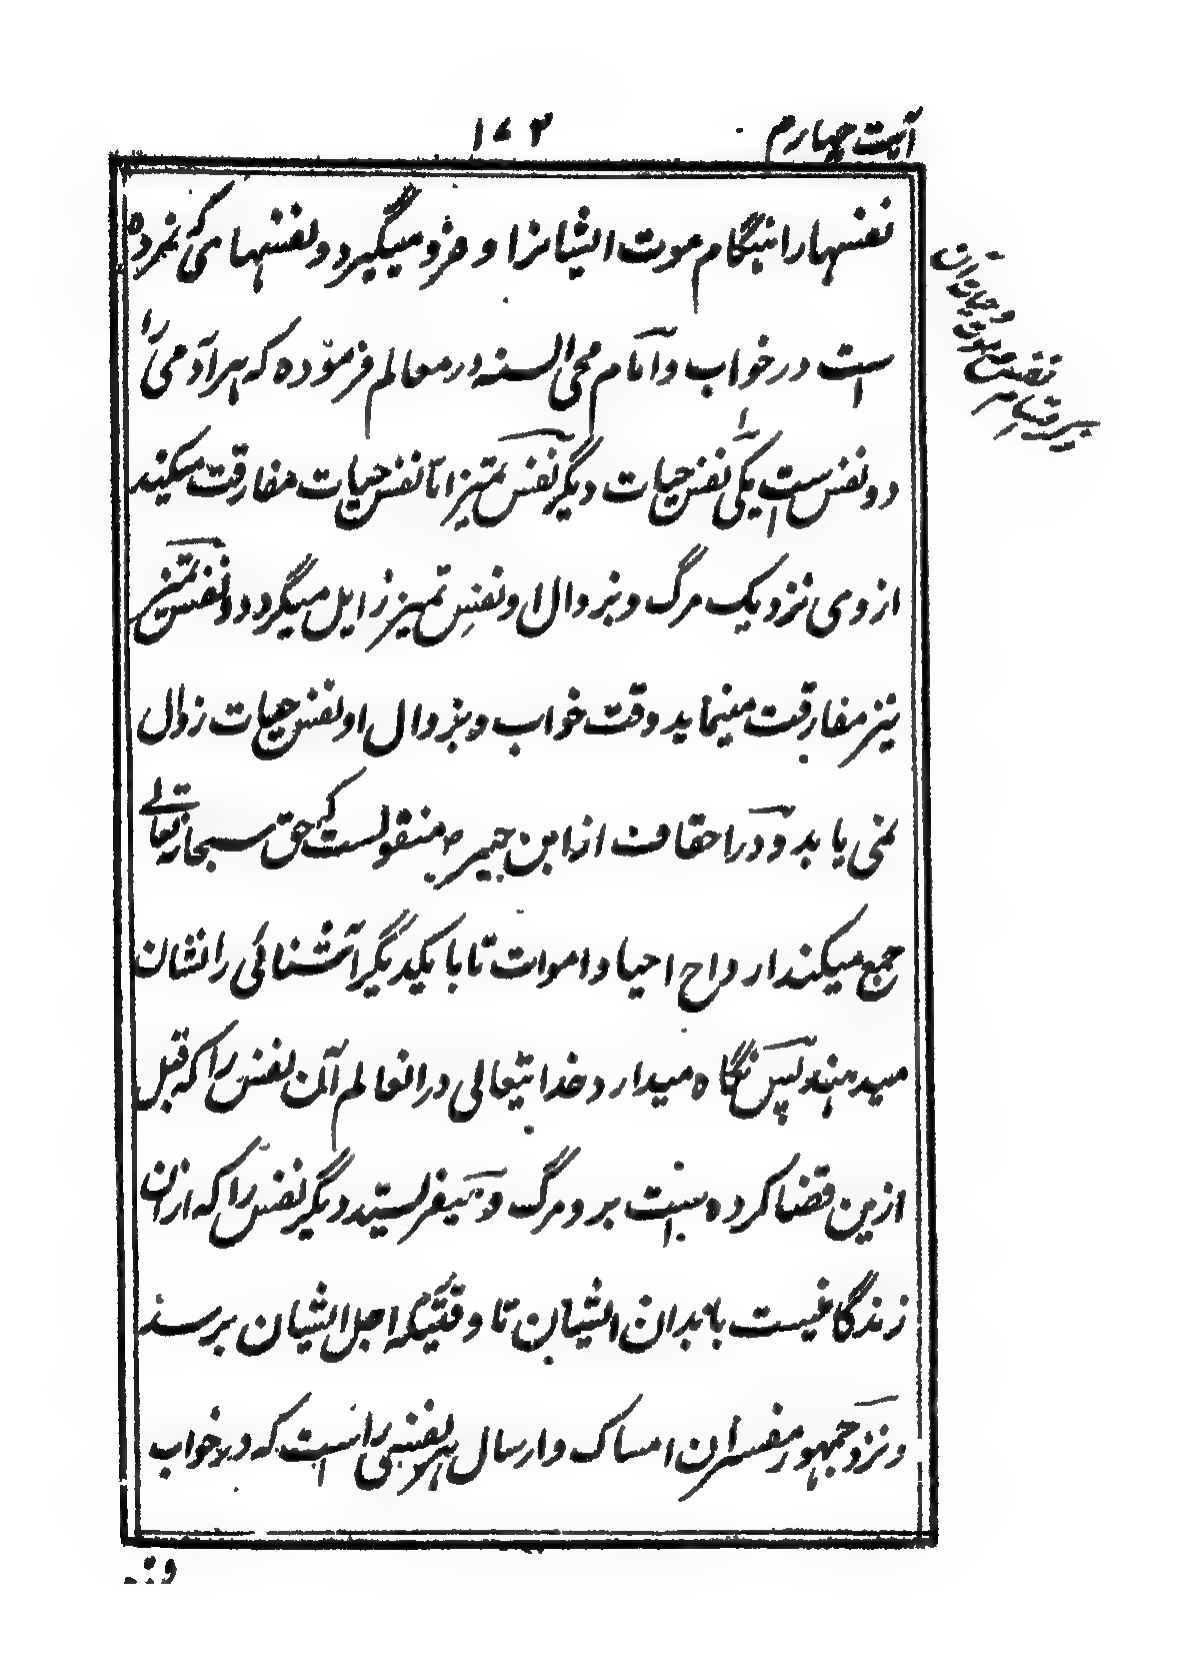 آیت چهارم ۱۷۳
نفسهارا هنگام موت ایشانرا و خرد میگیرد و نفسهای که نمرده
است در خواب و امام محی السنه در معالم فرموده که هر آدمی را
دو نفس ست یکی نفس حیات دیگر نفس تمیز اما نفس حیات مفارقت میکند
از وی نزدیک مرگ و بزوال او نفس تمیز زایل میگردد و نفس تمیز
نیز مفارقت مینماید وقت خواب و بزوال او نفس حیات زوال
نمی یابد و در احقاف از ابن جبیر رض منقولست که حق سبحانه تعالے
جمع میکند ارواح احیا و اموات تا با یکدیگر آشنائی را نشان
میدهند پس نگاه میدارد خدایتعالی در انعالم آن نفس را که قبل
ازین قضا کرده است برو مرگ و میفرستد دیگر نفس را که ازان
زندگانیست بابدان ایشان تا وقتیکه اجل ایشان برسد
و نزد جمهور مفسران امساک و ارسال هر نفسی راست که در خواب
ذکر قسام نفس